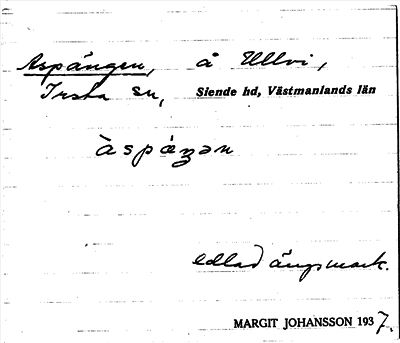 Aspängen, å Ullvi,
Irsta sn, Siende hd, Västmanlands län
àspæ̀ŋən
odlad ängsmark.
MARGIT JOHANSSON 1937.